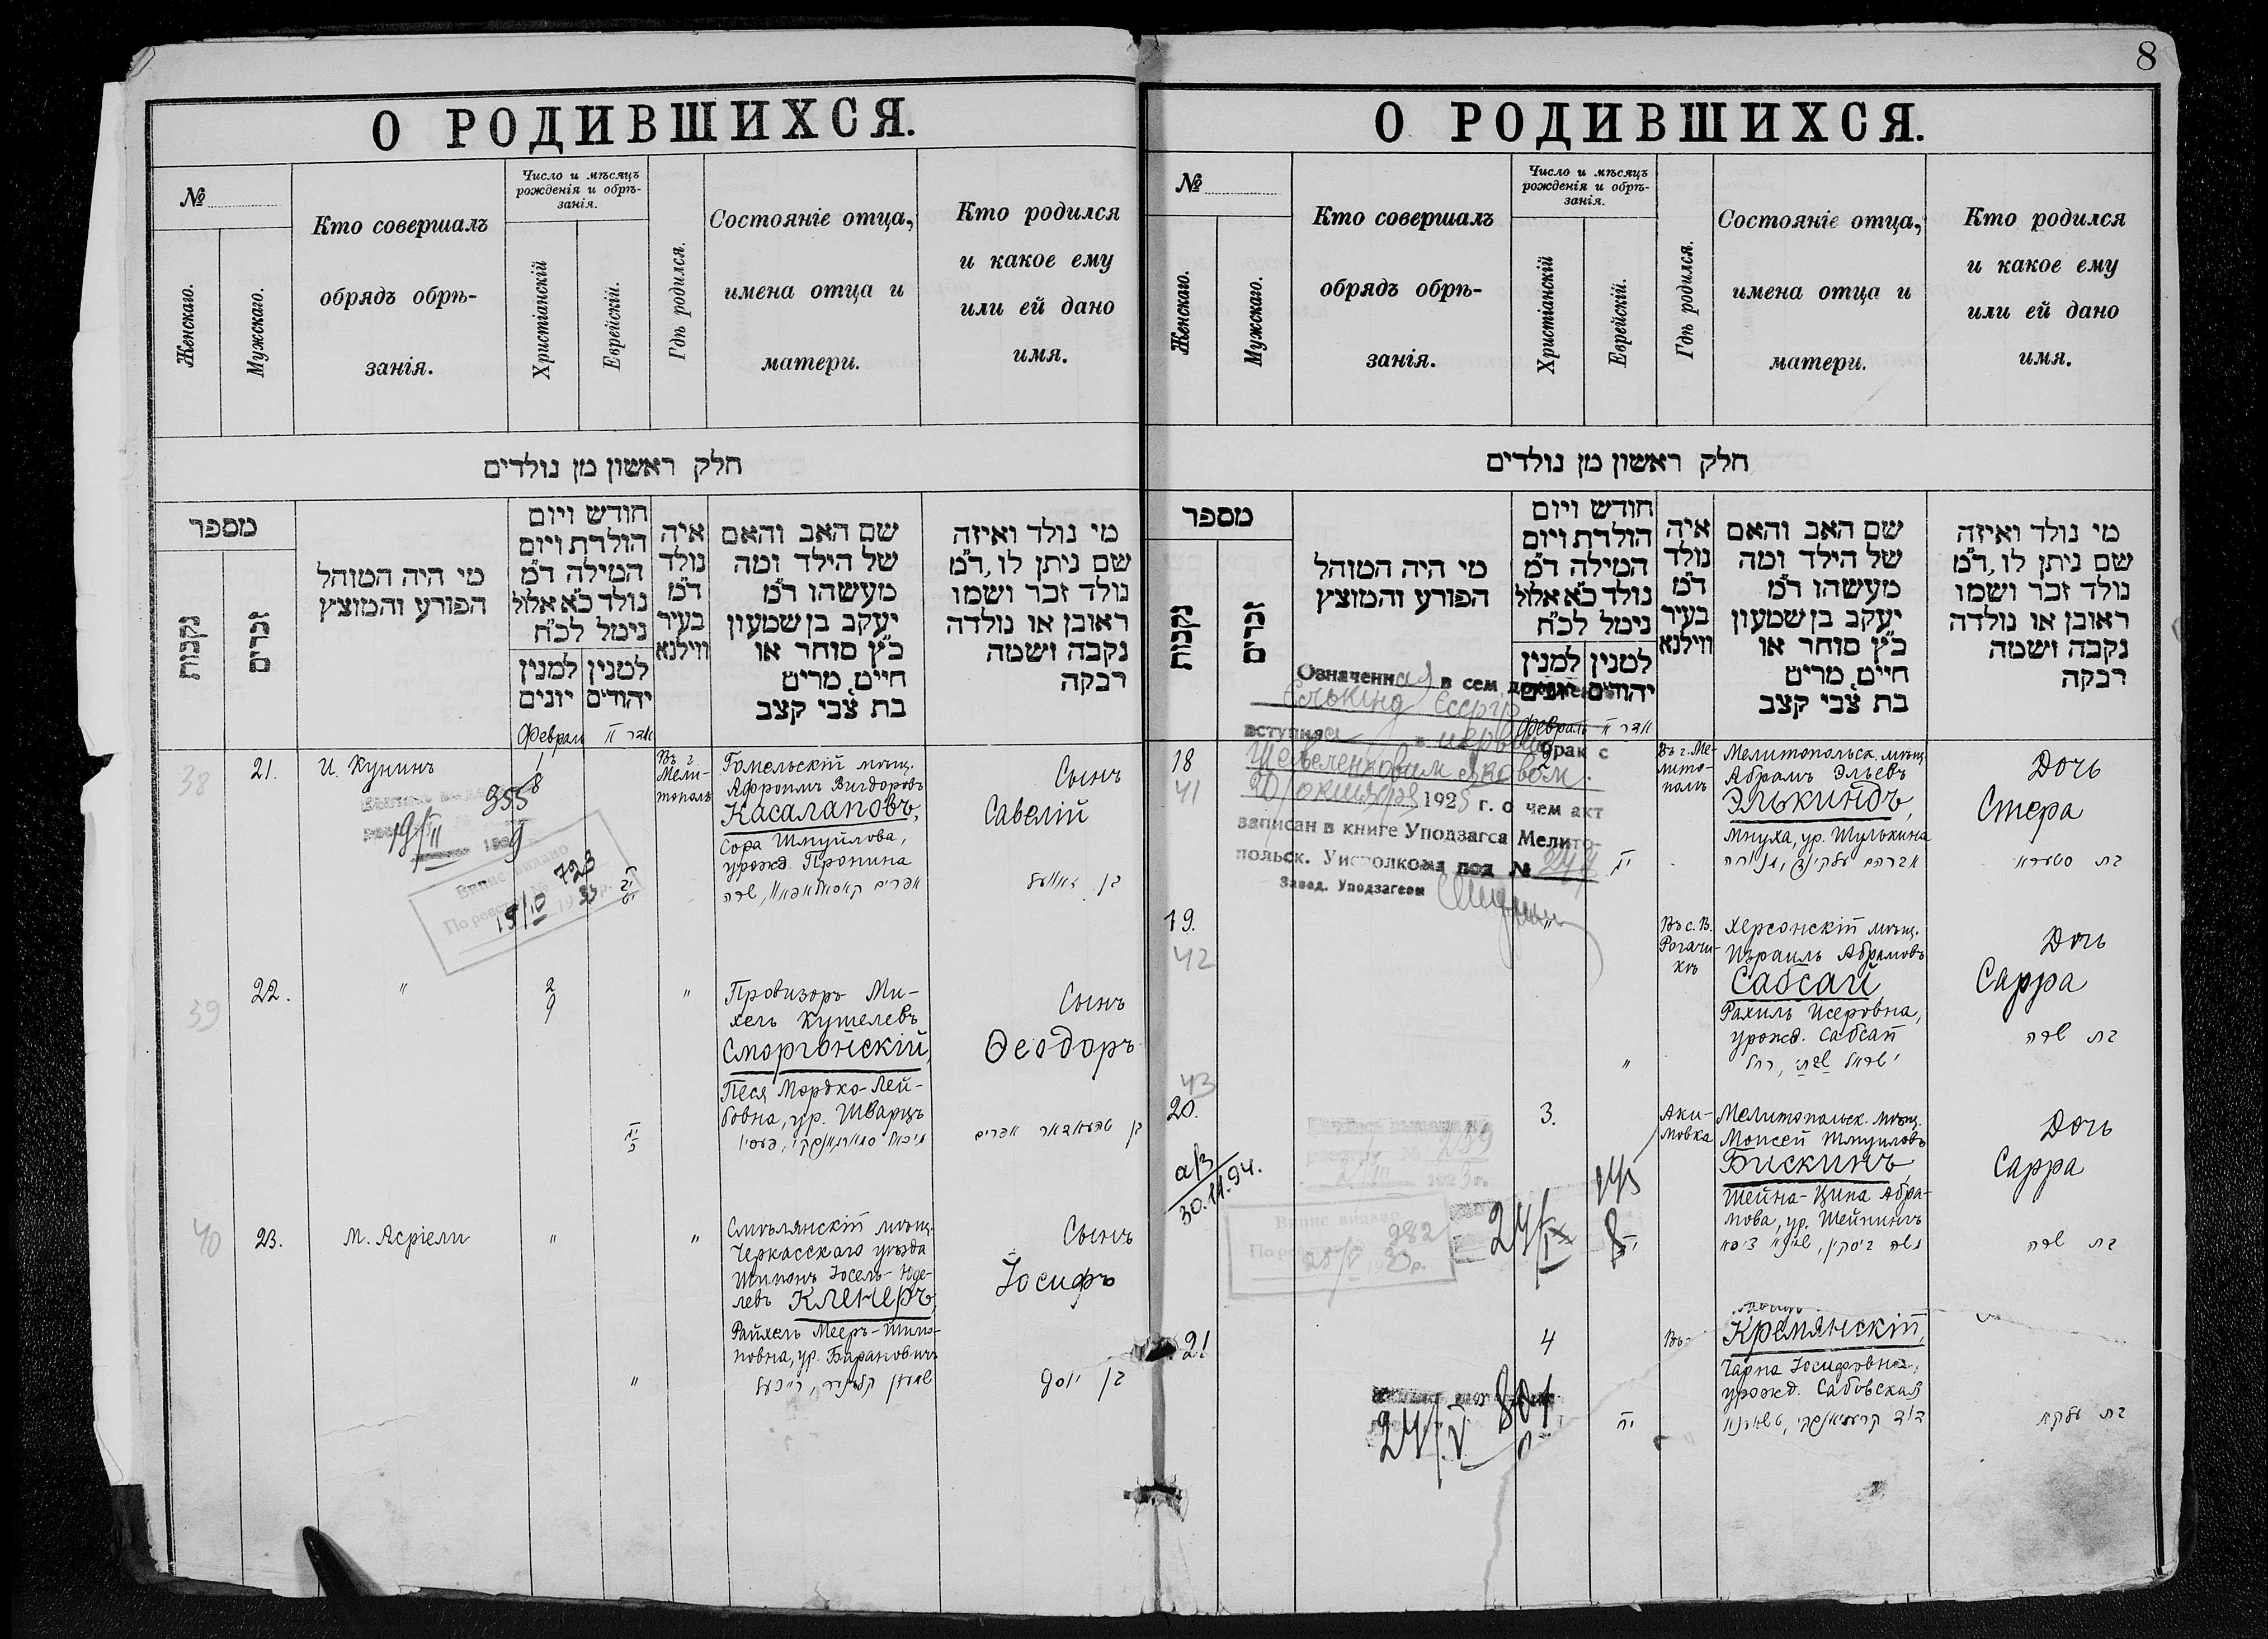 8
О РОДИВШИХСЯ.
№
Женскаго.
Мужскаго.
Кто совершалъ
обрядъ обрѣ-
занія.
Число и мѣсяцъ
рожденія и обрѣ-
занія.
Христіанскій
Еврейскій.
Гдѣ родился.
Состояніе отца,
имена отца и
матери.
Кто родился
и какое ему
или ей дано
имя.
חלק ראשון מן נולדים
מספר
נקבות
זכרים
מי היה המוהל
הפורע והמוצץ
חודש ויום
הולדת ויום
המילה ד״מ
נולד כ״א אלול
נימל לכ״ח
למנין יונים
למנין יהודים
איה
נולד
ד״מ
בעיר
ווילנא
שם האב והאם
של הילד ומה
מעשהו ד״מ
יעקב בן שמעון
כ״ץ סוחר או
חייט, מרים
בת צבי קצב
מי נולד ואיזה
שם ניתן לו, ד״מ
נולד זכר ושמו
ראובן או נולדה
נקבה ושמה
רבקה
Февраль
אדר II
38
21.
И. Кунинъ
1
8
Въ г.
Мели-
тополь
Гомельскій мѣщ.
Афроимъ Вигдоровъ
Касалаповъ,
Сора Шмуйлова,
урожд. Пронина
Сынъ
Савелій
355
19/II
Випис видано
По реєстру № 723
15/10
39
22.
"
2
9
"
Провизоръ Ми-
хель Кушелевъ
Сморгонскій,
Песя Мордко-Лей-
бовна, ур. Шварцъ
Сынъ
Ѳеодоръ
40
23.
М. Асріели
"
"
"
Смѣлянскій мѣщ.
Черкасскаго уѣзда
Шимонъ Іосель-Юде-
левъ Клейнеръ,
Райхель Мееръ-Шимо-
новна, ур. Барановичъ
Сынъ
Іосифъ
בן יוסף
О РОДИВШИХСЯ.
№
Женскаго.
Мужскаго.
Кто совершалъ
обрядъ обрѣ-
занія.
Число и мѣсяцъ
рожденія и обрѣ-
занія.
Христіанскій
Еврейскій.
Гдѣ родился.
Состояніе отца,
имена отца и
матери.
Кто родился
и какое ему
или ей дано
имя.
חלק ראשון מן נולדים
מספר
נקבות
זכרים
מי היה המוהל
הפורע והמוצץ
חודש ויום
הולדת ויום
המילה ד״מ
נולד כ״א אלול
נימל לכ״ח
למנין יונים
למנין יהודים
איה
נולד
ד״מ
בעיר
ווילנא
שם האב והאם
של הילד ומה
מעשהו ד״מ
יעקב בן שמעון
כ״ץ סוחר או
חייט, מרים
בת צבי קצב
מי נולד ואיזה
שם ניתן לו, ד״מ
נולד זכר ושמו
ראובן או נולדה
נקבה ושמה
רבקה
Февраль
אדר II
Означенная в сем документе
Елькинд Есфирь
вступила в первый брак с
Шевеленковым Яковом.
20/октября 1925 г. о чем акт
записан в книге Уподзагса Мелито-
польск. Уисполкома под № 244
Завед. Уподзагсом
18
41
Въ г. Ме-
лито-
поль
Мелитопольск. мѣщ.
Абрамъ Эльевъ
Элькиндъ,
Мнуха, ур. Шулькина
Дочь
Стера
בת סטערא
19.
42
"
"
Въ с. В.
Рогачи-
кѣ
Херсонскій мѣщ.
Израиль Абрамовъ
Сабсай
Рахиль Исеровна,
урожд. Сабсай
Дочь
Сарра
בת שרה
43
20.
3.
Аки-
мовка
Мелитопольск. мѣщ.
Моисей Шмуиловъ
Бискинъ
Шейна-Ципа Абра-
мова, ур. Шейнинъ
Дочь
Сарра
בת שרה
30.11.94.
239
Випис видано
По реєстру № 282
25/V 193 р.
24/IX
21
4
Въ
Кремянскій,
Чарна Іосифовна,
урожд. Сабовская
24/V. 801